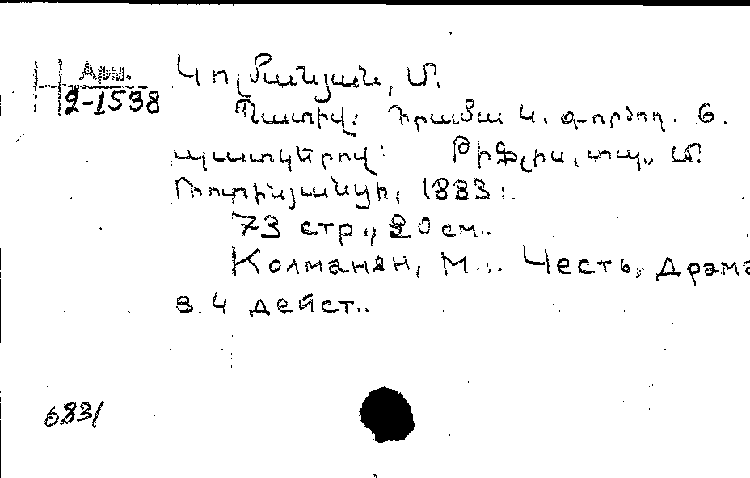 Арм.
2-1538
Կոլմանյան, Մ.
Պատիվ: Դրամա 4. գործող. 6.
պատկերով: Թիֆլիս, տպ. Մ.
1883:
73 стр., 20 см.
Колманян, М. Честь, драма
в 4 дейст.
6831